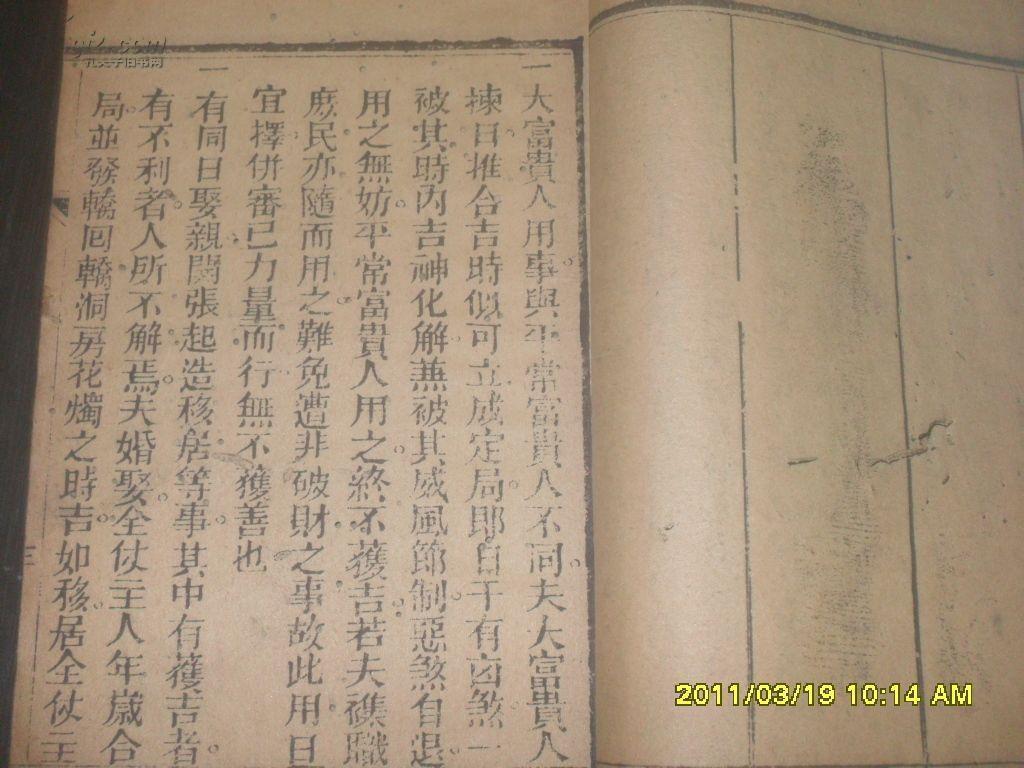 一大富貴人用事與平常富貴人不同夫大富貴人
揀日推合吉時似可立成定局即日干有凶煞一
被其時內吉神化解兼被其威風節制惡煞自退
用之無妨平常富貴人用之終不獲吉若夫
庶民亦隨而用之難免遭非破財之事故此用日
宜擇併審已力量而行無不獲善也
一有同日娶親開張起造移居等事其中有獲吉者
有不利者人所不解焉夫婚娶全仗主人年歲合
局並發轎回轎洞房花燭之時吉如移居全仗主
三
孔夫子旧书网
2011/03/19 10:14 AM